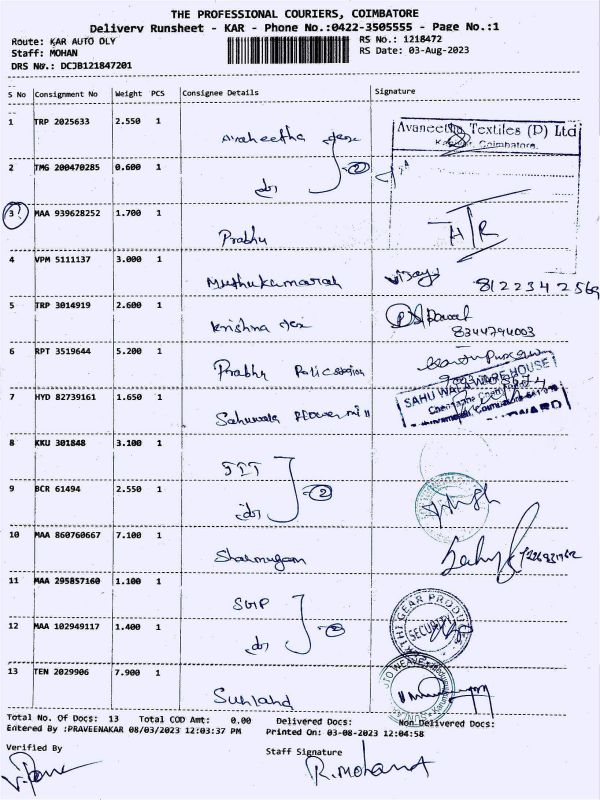 THE PROFESSIONAL COURIERS, COIMBATORE
Delivery Runsheet - KAR - Phone No.:0422-3505555 - Page No.:1
Route: KAR AUTO DLY
RS No.: 1218472
Staff: MOHAN
RS Date: 03-Aug-2023
DRS No.: DCJB121847201
S No Consignment No Weight PCS Consignee Details Signature
1 TRP 2025633 2.550 1
Avaneetha Textiles (P) Ltd
Coimbatore.
2 TMG 200470285 0.600 1 do 2
3 MAA 939628252 1.700 1 Prabhu
4 VPM 5111137 3.000 1 Muthukumaran Vijay 8122342569
5 TRP 3014919 2.600 1 Krishna tex
8344794003
6 RPT 3519644 5.200 1 Prabhu
7 HYD 82739161 1.650 1 Sahuwala Flower mill
SAHU WALA WAREHOUSE
8 KKU 301848 3.100 1
9 BCR 61494 2.550 1 do 2
10 MAA 860760667 7.100 1 Shanmugam
11 MAA 295857160 1.100 1
GEAR PRODU
SECURITY
12 MAA 102949117 1.400 1 do 2
13 TEN 2029906 7.900 1 Sunland
Total No. Of Docs: 13 Total COD Amt: 0.00 Delivered Docs: Non Delivered Docs:
Entered By :PRAVEENAKAR 08/03/2023 12:03:37 PM Printed On: 03-08-2023 12:04:58
Verified By
Staff Signature
R.Mohan